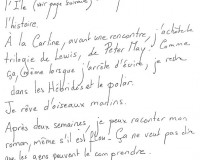 l'Île (voir page suivante)
l'histoire.
À la Carline, avant une rencontre, j'achète la
trilogie de Lewis, de Peter May. Comme
ça, même lorsque j'arrête d'écrire, je reste
dans les Hébrides et le polar.
Je rêve d'oiseaux marins.
Après deux semaines, je peux raconter mon
roman, même s'il est flou. Ça ne veut pas dire
que les gens peuvent le comprendre.